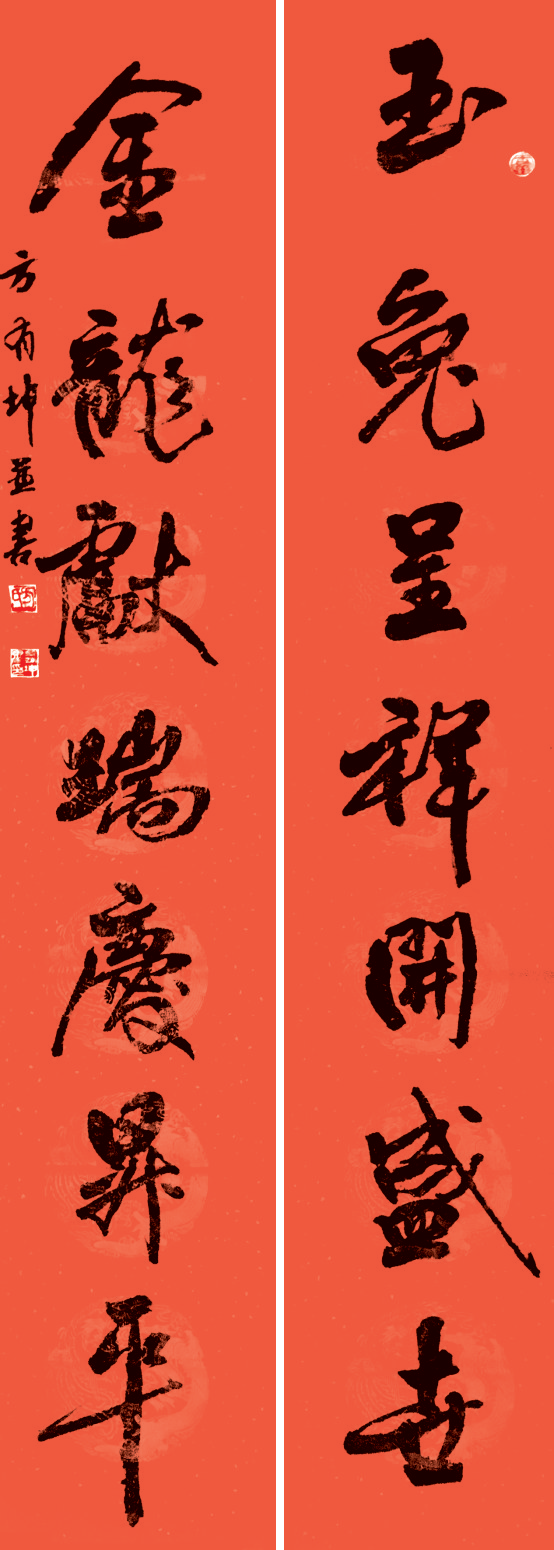 玉兔呈祥開盛世
金龍獻瑞慶昇平
方有坤並書